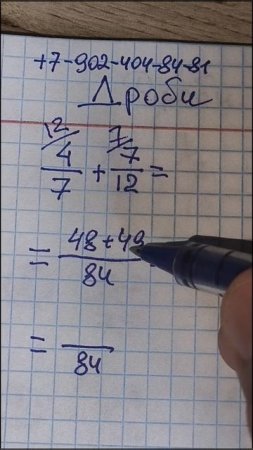 +7-902-404-84-81
Дроби
12 7
4/7 + 7/12 =
= 48+49/84 =
= /84